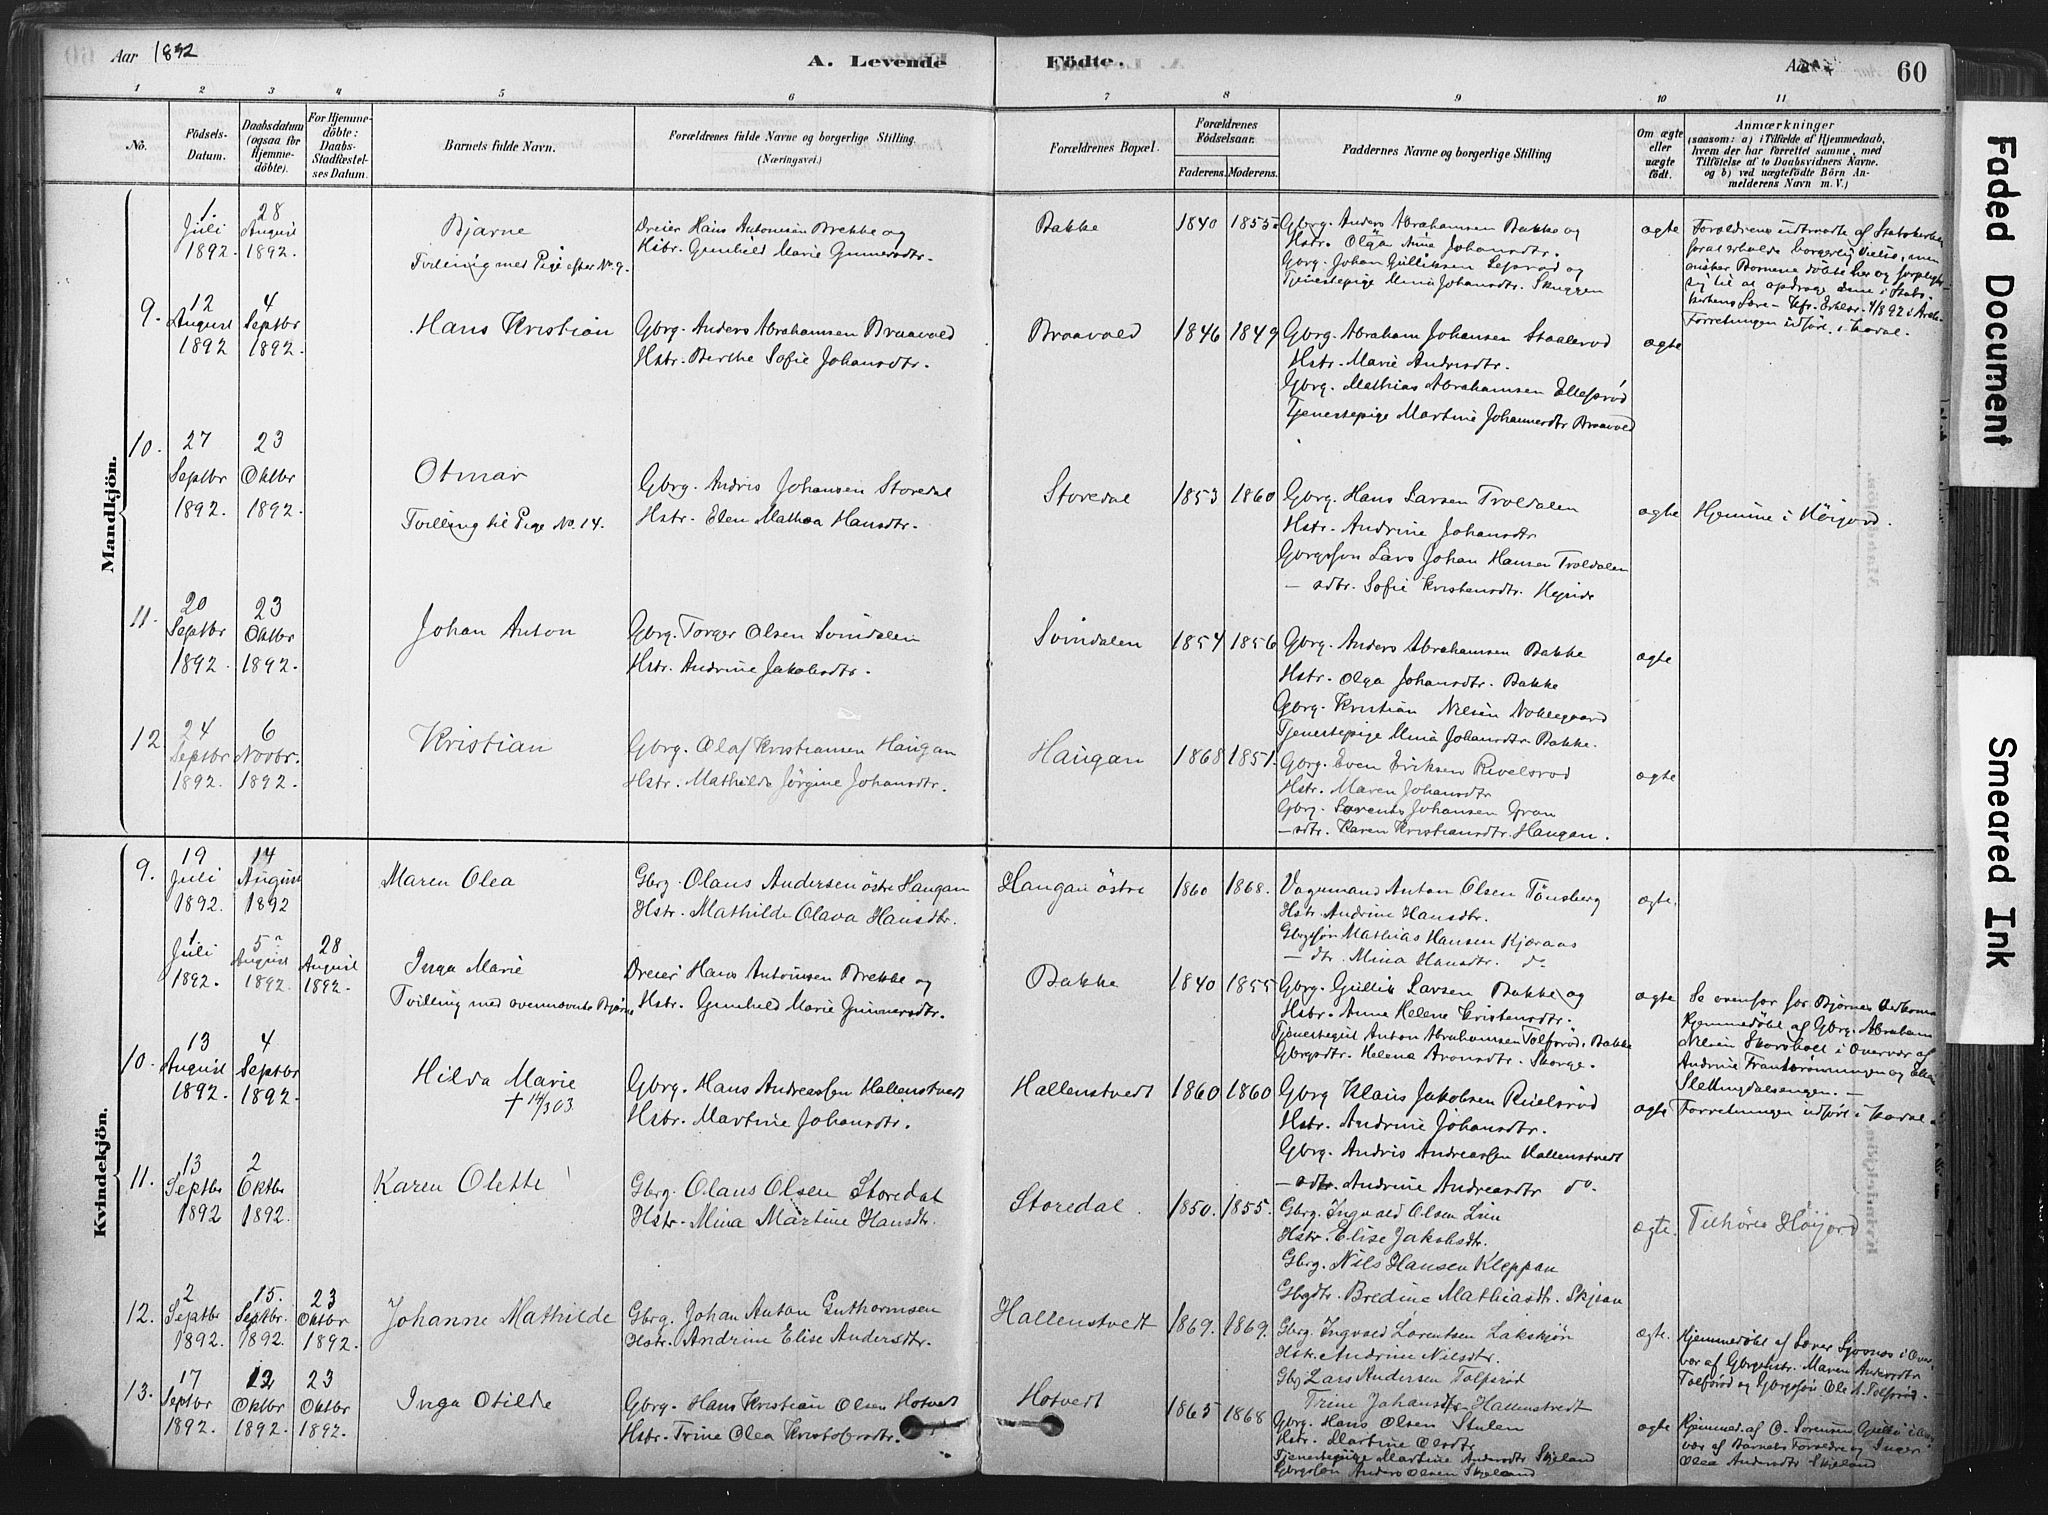 Aar 1892
A. Levende
Födte.
Aar
60
1 2 3 4 5 6 7 8 9 10 11
No.
Födsels-Datum.
Daabsdatum (ogsaa for Hjemme-döbte).
For Hjemme-döbte: Daabs-Stadfæstel-ses Datum.
Barnets fulde Navn.
Forældrenes fulde Navne og borgerlige Stilling. (Næringsvei.)
Forældrenes Bopæl.
Forældrenes Födselsaar.
Faderens. Moderens.
Faddernes Navne og borgerlige Stilling
Om ægte eller uægte födt.
Anmærkninger
(saasom: a) i Tilfælde af Hjemmedaab,
hvem der har forrettet samme, med
Tilföielse af to Daabsvidners Navne.
og b) ved uægtefödte Börn An-
melderens Navn m. V.)
Mandkjön.
1. Juli 1892
28 August 1892.
Bjarne
Tvilling med Pige efter No. 9.
Dreier Hans Antonisen Brekke og
Hstr. Gunhild Marie Gunnersdtr.
Bakke
1840 1855
Gbrg. Anders Abrahamsen Bakke og
Hstr. Olga Nine Johansdtr.
Gbrg. Johan Gulliksen
Tjenestepige Mina Johansdtr. Skuggen
ægte
Forældrene udtraadte af Statskirken
for at erholde borgerlig Vielse, men
ønsker Børnene døbte her og forpligte
sig til at opdrage dem i Stats-
kirkens Lære
Forretningen udført i
9.
12 August 1892
4 Septbr 1892.
Hans Kristian
Gbrg. Anders Abrahamsen Braavold
Hstr. Berthe Sofie Johansdtr.
Braavold
1846 1849
Gbrg. Abraham Johansen Staalerød
Hstr. Marie Andersdtr.
Gbrg. Mathias Abrahamsen Ellefsrød
Tjenestepige Martine Johannesdtr Braavold
ægte
10.
27 Septbr 1892.
23 Oktbr 1892.
Otmar
Tvilling til Pige No. 14.
Gbrg. Andris Johansen Storedal
Hstr. Elen Mathea Hansdtr.
Storedal
1853 1860
Gbrg. Hans Larsen Troldalen
Hstr. Andrine Johansdtr
Gbrgssøn Lars Johan Hansen Troldalen
— sdtr. Sofie Kristensdtr.
ægte
Hjemme i Høijord.
11.
20 Septbr 1892.
23 Oktbr 1892.
Johan Anton
Gbrg. Torger Olsen Svindalen
Hstr. Andrine Jakobsdtr.
Svindalen
1854 1856
Gbrg. Anders Abrahamsen Bakke
Hstr. Olga Johansdtr. Bakke
Gbrg. Kristian Nilsen
Tjenestepige Mina Johansdtr. Bakke.
ægte
12
24 Septbr 1892.
6 Novbr. 1892.
Kristian
Gbrg. Olaf Kristiansen Haugan
Hstr. Mathilde Jørgine Johansdtr.
Haugan
1868 1851.
Gbrg. Even Eriksen Rivelsrød
Hstr. Maren Johansdtr
Gbrg. Lorents Johansen Gran
— sdtr. Karen Kristiansdtr. Haugan.
ægte
Kvindekjön.
9.
19 Juli 1892.
14 August 1892
Maren Olea
Gbrg. Olaus Andersen østre Haugan
Hstr. Mathilde Olava Hansdtr.
Haugan østre
1860 1868.
Vognmand Anton Olsen Tønsberg
Hstr. Andrine Hansdtr.
Gbrgssøn Mathias Hansen Kjæraas
— dtr. Mina Hansdtr. do
ægte.
1 Juli 1892.
5 August 1892.
28 August 1892.
Inga Marie
Tvilling med ovennævnte Bjarne
Dreier Hans Antonisen Brekke og
Hstr. Gunhild Marie Gunnersdtr.
Bakke
1840 1855
Gbrg. Gullik Larsen Bakke og
Hstr. Anne Helene Kristensdtr.
Tjenestegut Anton Abrahamsen Tolfsrød, Bakke
Gbrgsdtr. Helena Aronsdtr. Skorge.
ægte
Se ovenfor for Bjarnes Vedkomm.
Hjemmedøbt af Gbrg. Abraham
Nilsen Skorsholt i Overvær af
Andrine og
Slettingdalsengen. —
Forretningen udført i
10.
13 August 1892
4 Septbr 1892.
Hilda Marie
† 14/3 03
Gbrg. Hans Andreassen Hallenstvedt
Hstr. Martine Johansdtr.
Hallenstvedt
1860 1860
Gbrg Klaus Jakobsen Rivelsrød
Hstr. Andrine Johansdtr.
Gbrg. Andris Andreassen Hallenstvedt
— sdtr. Andrine Andreasdtr do.
ægte
11.
13 Septbr 1892
2 Oktbr 1892.
Karen Olette
Gbrg. Olaus Olsen Storedal
Hstr. Mina Martine Hansdtr.
Storedal.
1850. 1855.
Gbrg. Ingvald Olsen Lien
Hstr. Elise Jakobsdtr.
Gbrg. Nils Hansen Kleppan
Gbgdtr. Bredine Mathiasdtr. Skjeau
ægte.
Tilhører Høijord
12.
2 Septbr 1892.
15. Septbr. 1892.
23 Oktbr 1892.
Johanne Mathilde
Gbrg. Johan Anton Guthormsen
Hstr. Andrine Elise Andersdtr.
Hallenstvedt
1869. 1869.
Gbrg. Ingvald Lorentsen Lakskjøn
Hstr. Andrine Nilsdtr.
Gbg Lars Andersen Tolfsrød
Trine Johansdtr Hallenstvedt
ægte.
Hjemmedøbt af Lærer i Over-
vær af Gbrgehstr. Maren Andersdtr
Tolfsrød og Gbrgssøn Ole A. Tolfsrød.
13.
17 Septbr 1892.
12 Oktbr 1892.
23 Oktbr 1892.
Inga Otilde
Gbrg. Hans Kristian Olsen Hotvedt
Hstr. Trine Olea Kristofersdtr.
Hotvedt
1865 1868
Gbrg. Hans Olsen Stulen
Hstr. Martine Olsdtr
Tjenestepige Martine Andersdtr Skjeland
Gbrgssøn Anders Olsen Skjeland
ægte
Hjemmed. af O. Sørensen, i Over-
vær af Barnets Forældre og Inger
Olea Andersdtr Skjeland
Faded Document
Smeared Ink